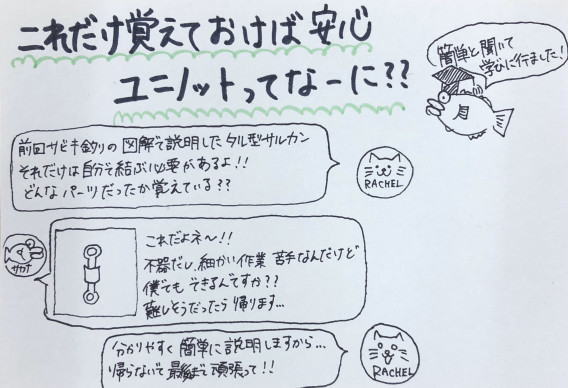 これだけ覚えておけば安心
ユニノットってなーに??
簡単と聞いて
学びに行きました!
前回サビキ釣りの図解で説明したタル型サルカン
それだけは自分で結ぶ必要があるよ!!
どんなパーツだったか覚えている??
RACHEL
これだよネ〜!!
不器だし、細かい作業苦手なんだけど
僕でもできるんですか??
難しそうだったら帰ります...
サカナ
分かりやすく簡単に説明しますから...
帰らないで最後まで頑張って!!
RACHEL